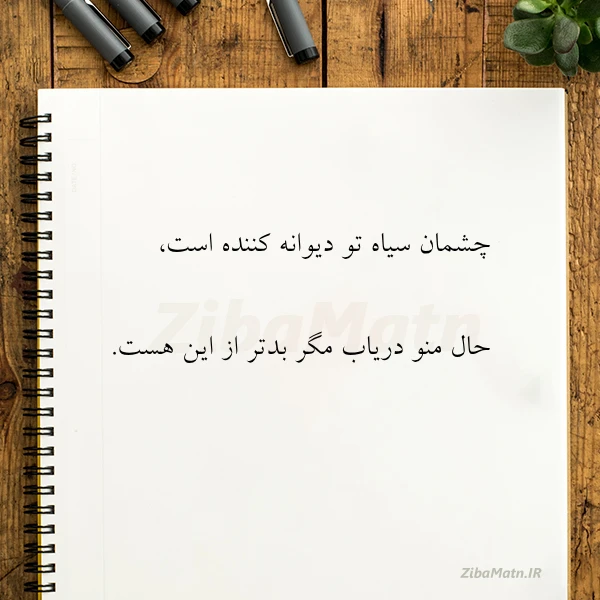 چشمان سیاه تو دیوانه کننده است،
حال منو دریاب مگر بدتر از این هست.
ZibaMatn
ZibaMatn.IR